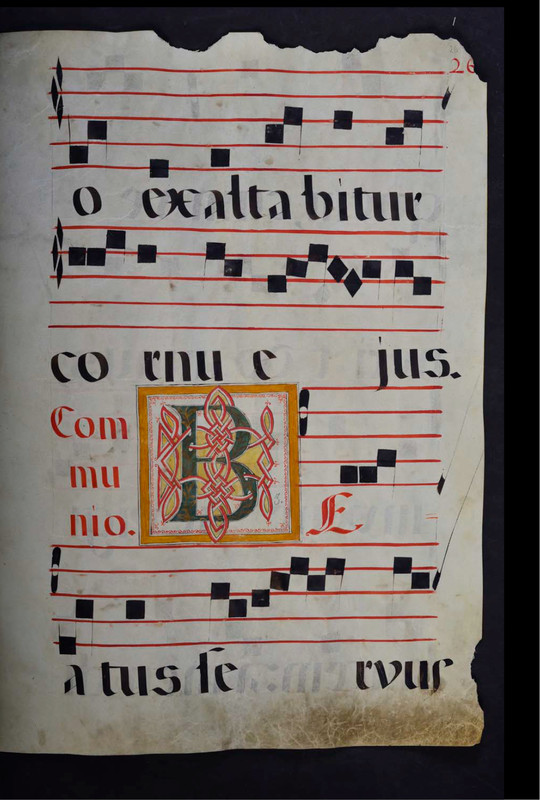 26
o exalta bitur
co rnu e jus.
Com
mu
nio.
B E
a tus se rvus